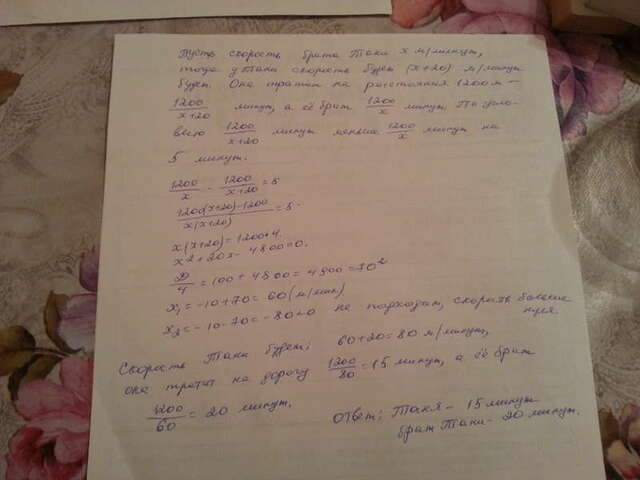 Пусть скорость брата Тани x м/минут,
тогда у Тани скорость будет (x+20) м/минут
будет. Она тратит на расстояния 1200 м –
1200/(x+20) минут, а её брат 1200/x минут. По усло-
вию 1200/(x+20) минут меньше 1200/x минут на
5 минут.
1200/x - 1200/(x+20) = 5
x(x+20)=1200*4.
x²+20x-4800=0.
D/4 = 100+4800=4900=70²
x₁=-10+70=60(м/мин)
x₂=-10-70=-80<0 не подходит, скорость больше
нуля
Скорость Тани будет; 60+20=80 м/минут,
она тратит на дорогу 1200/80=15 минут, а её брат
1200/60=20 минут.
Ответ; Таня – 15 минут
брат Тани – 20 минут.